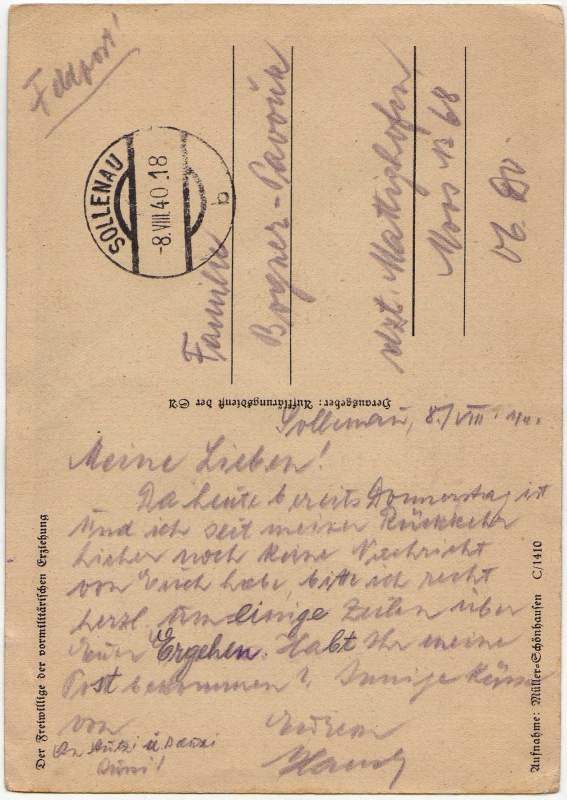 Feldpost!
SOLLENAU
-8.VIII.40.18
a
Familie
Bogner-Pavouk
dzt. Mattighofen
Moos N 68
Herausgeber: Aufklärungsdienst der SA
Sollenau, 8./VIII. 40.
Meine Lieben!
Da heute bereits Donnerstag ist
und ich seit meiner Rückkehr
hieher noch keine Nachricht
von Euch habe, bitte ich recht
herzl. um einige Zeilen über
Euer Ergehen. Habt Ihr meine
Post bekommen? Innige Küsse
von Eurem
Der Freiwillige der vormilitärischen Erziehung
Aufnahme: Müller-Schönhausen C/1410